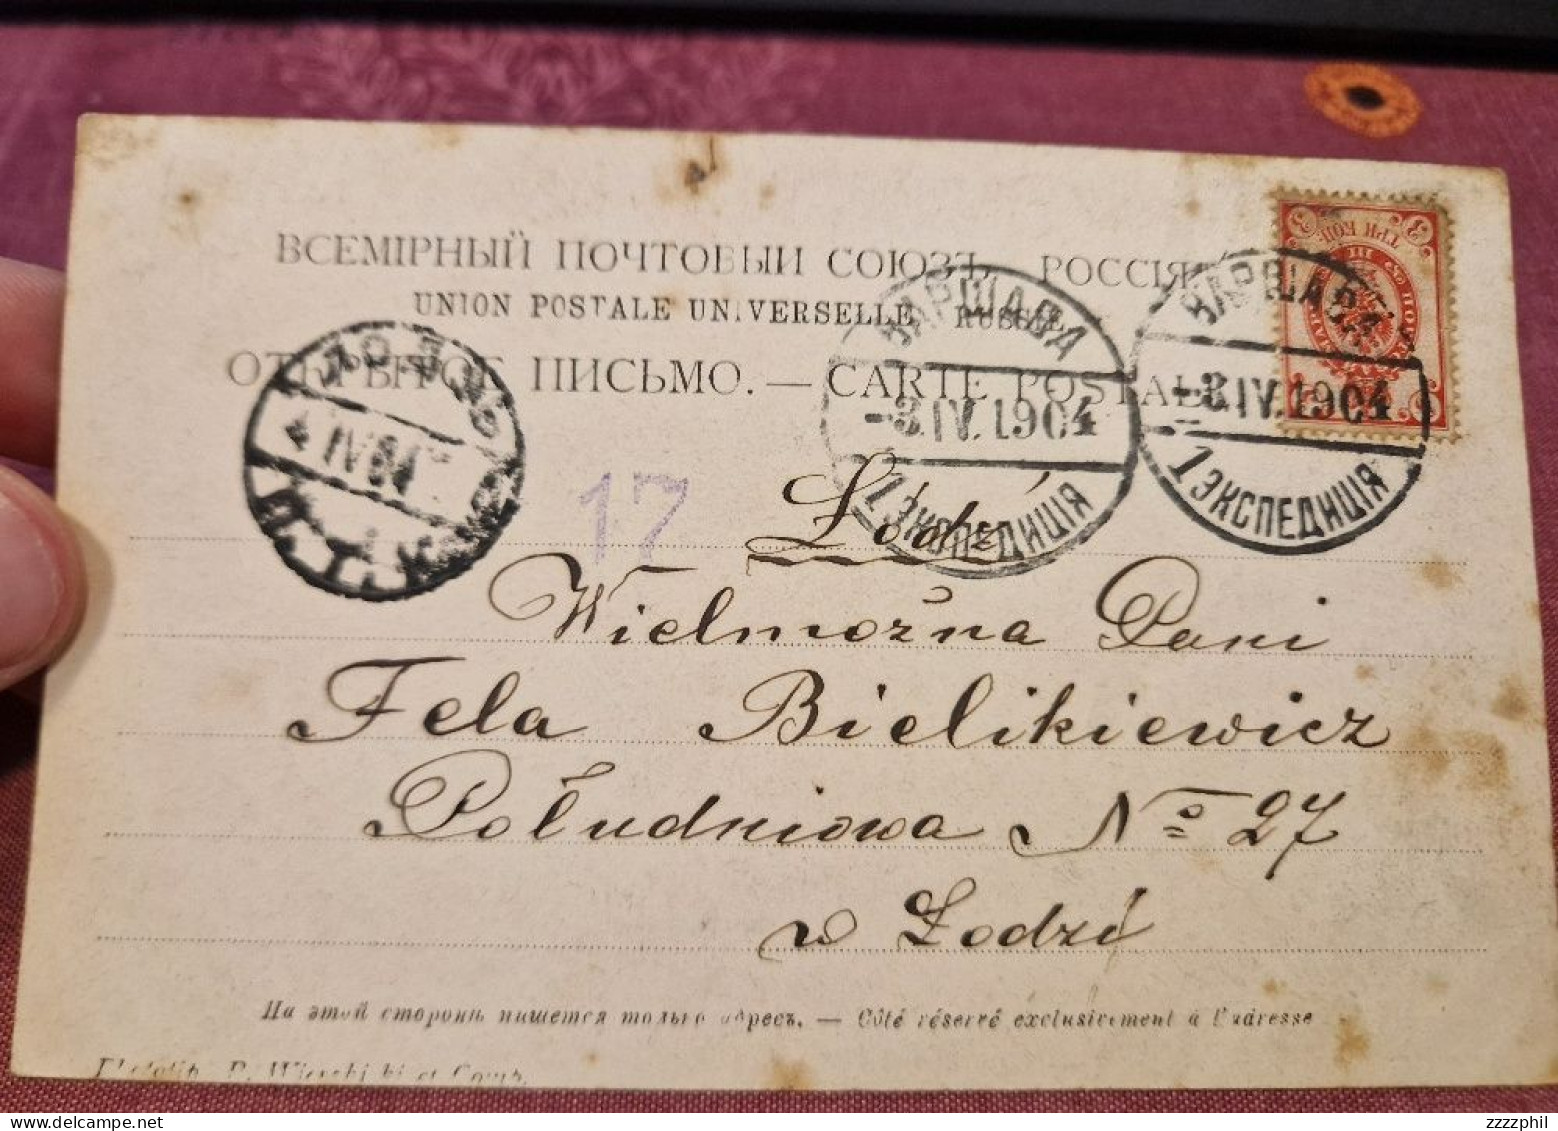 ВСЕМІРНЫЙ ПОЧТОВЫЙ СОЮЗЪ. РОССІЯ
UNION POSTALE UNIVERSELLE. RUSSIE
ОТКРЫТОЕ ПИСЬМО. — CARTE POSTALE
3 ТРИ КОП. 3
ВАРШАВА
-3.IV.1904
1 ЭКСПЕДИЦІЯ
ВАРШАВА
-3.IV.1904
1 ЭКСПЕДИЦІЯ
ЛОДЗЬ
4 IV 04
17
Łódź
Wielmożna Pani
Fela Bielikiewicz
Południowa No 27
w Łodzi
На этой сторонѣ пишется только адресъ. — Côté réservé exclusivement à l'adresse
zzzzphil